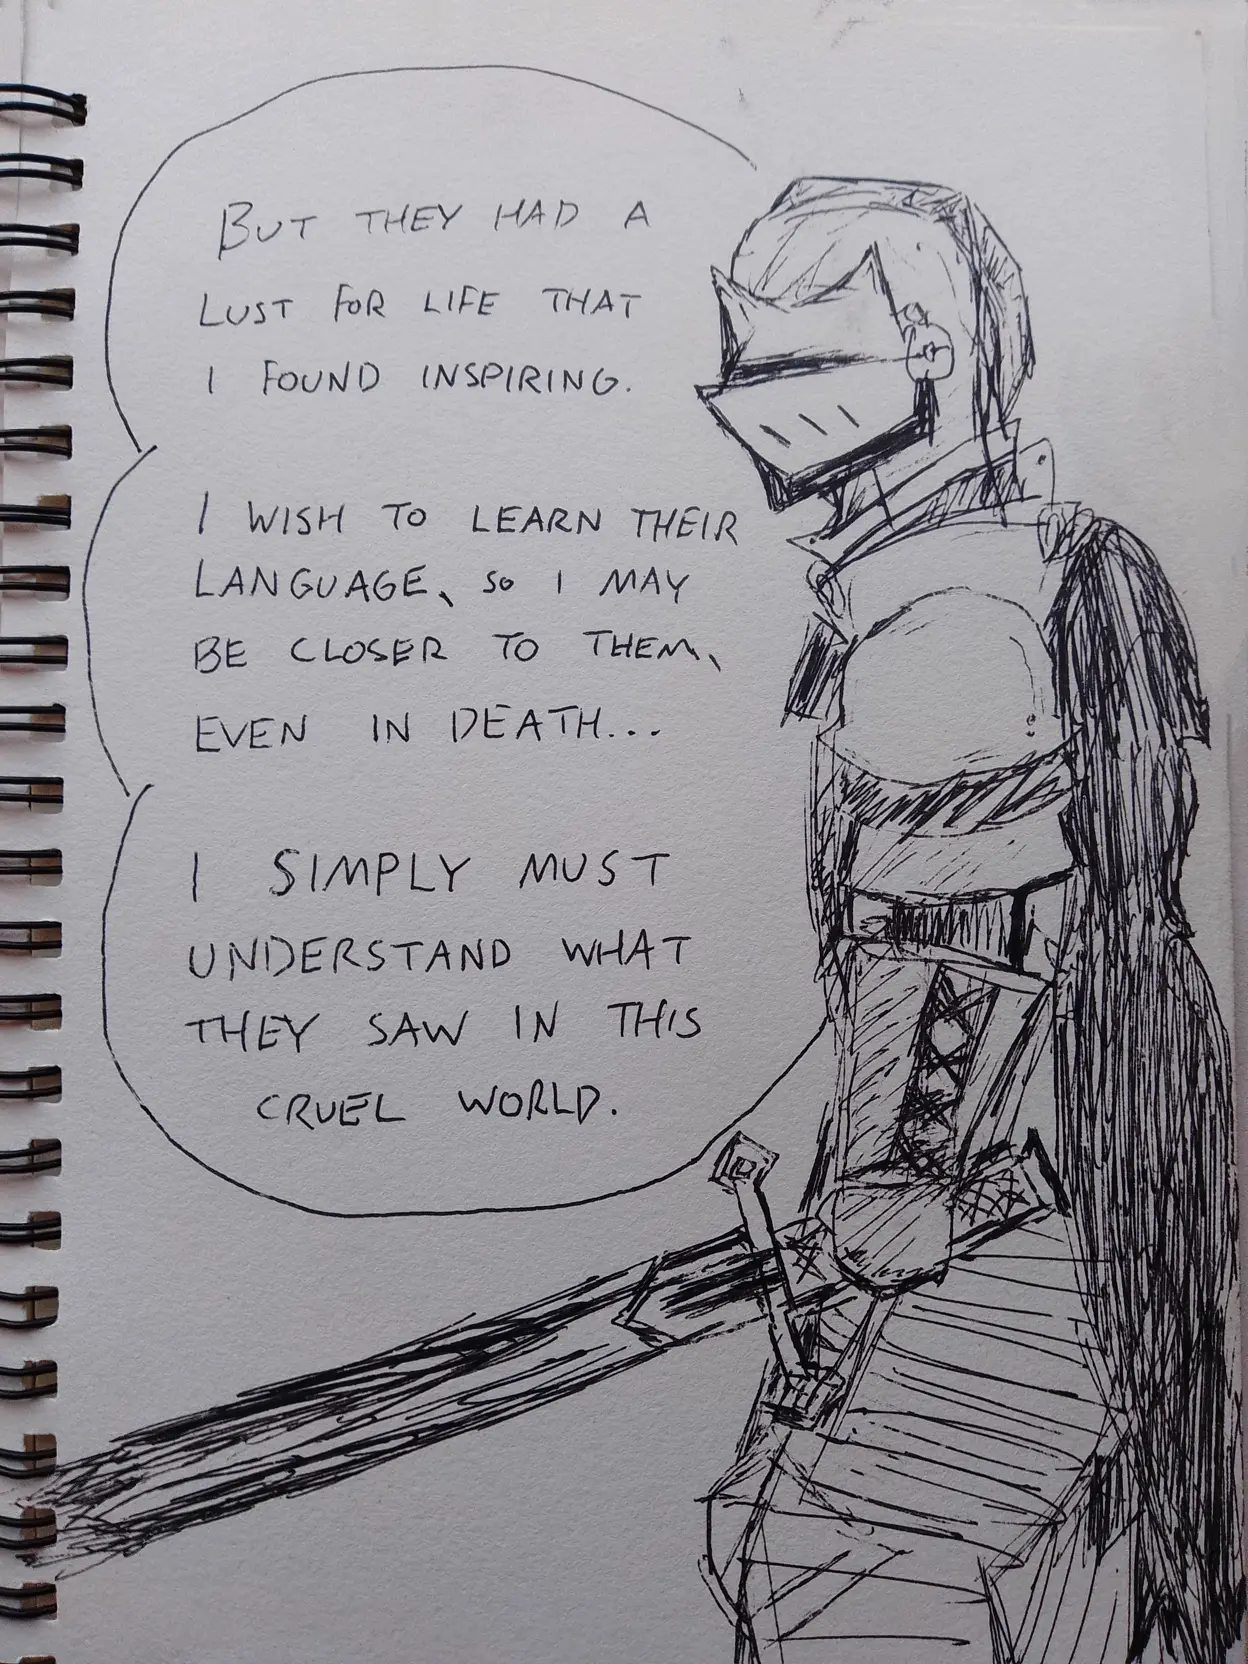 BUT THEY HAD A
LUST FOR LIFE THAT
I FOUND INSPIRING.
I WISH TO LEARN THEIR
LANGUAGE, SO I MAY
BE CLOSER TO THEM,
EVEN IN DEATH...
I SIMPLY MUST
UNDERSTAND WHAT
THEY SAW IN THIS
CRUEL WORLD.